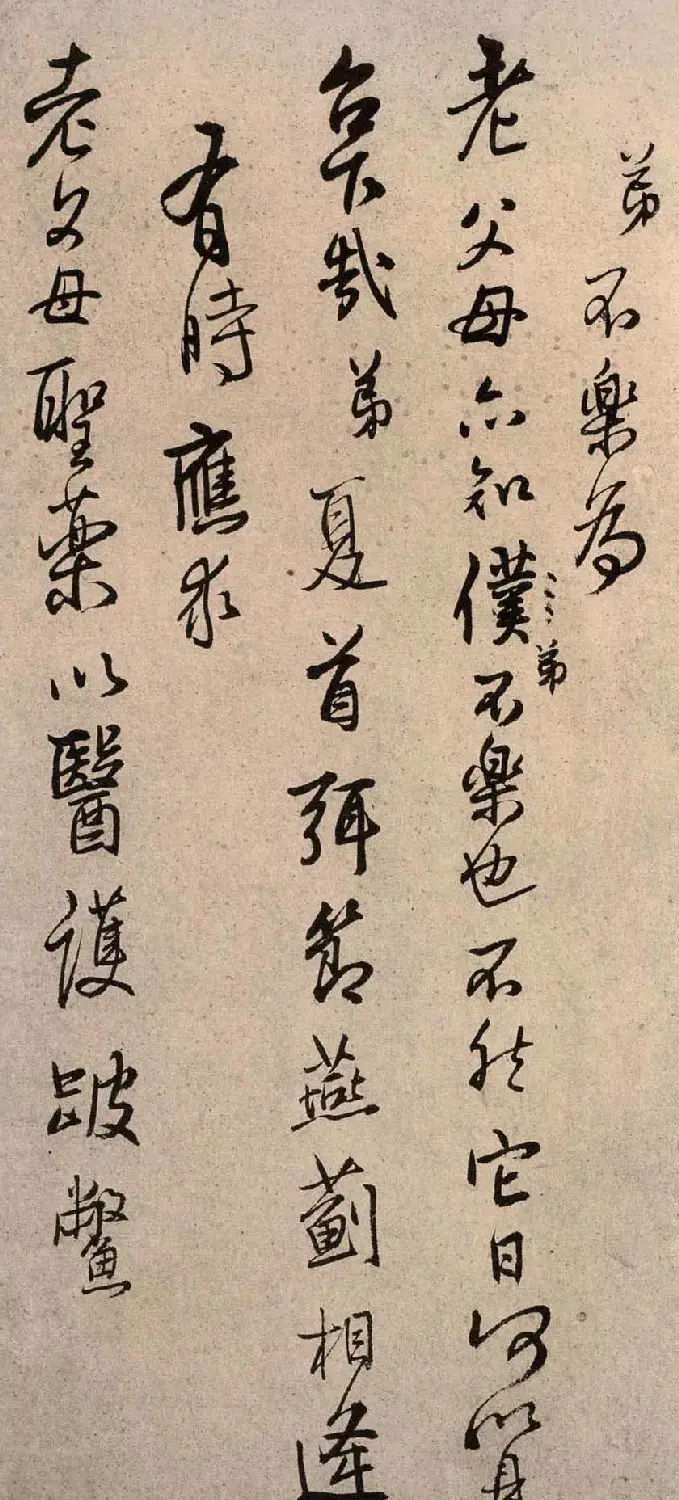 弟不樂為
老父母亦知僕弟不樂也不然它日何以見
台下哉弟夏首弭節燕薊相逢
有時應求
老父母聖藥以醫護跛鱉